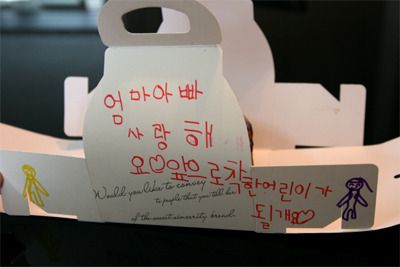 엄마아빠
사랑해
요♡앞으로착
한어린이가
될개♡
Would you like to convey
to people that you tell her
of the sweet sincerity bread.